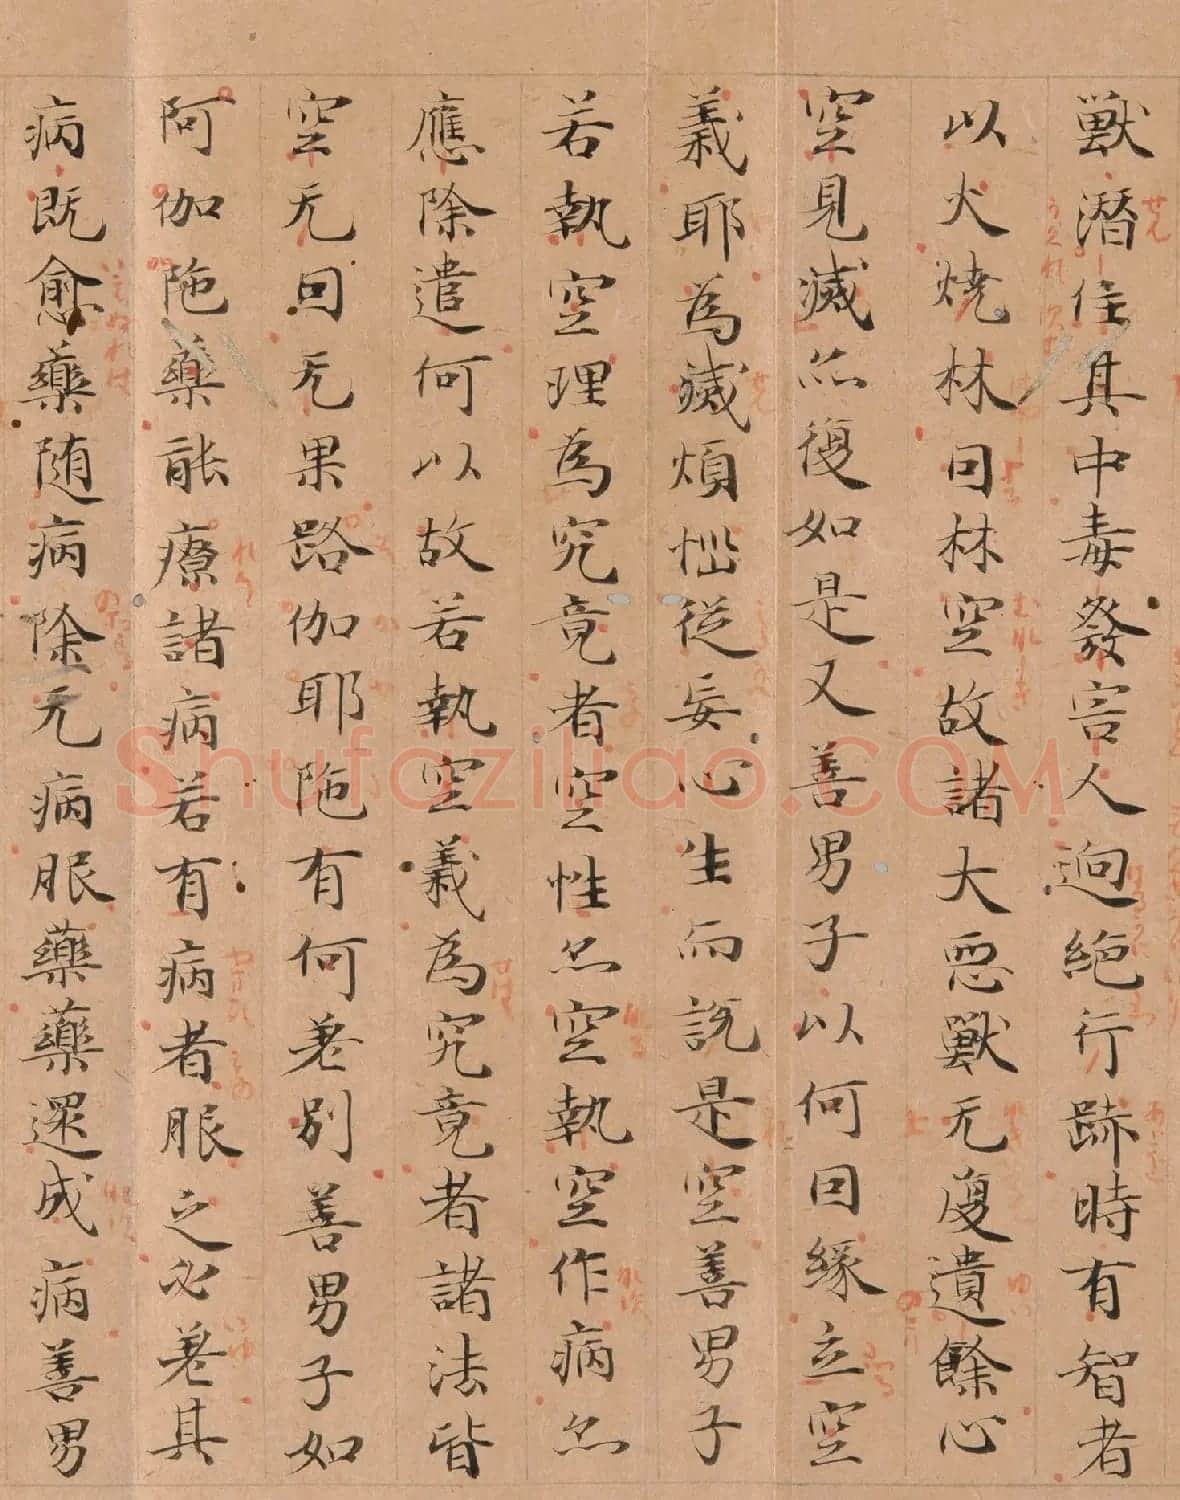 獸潜住其中毒發害人迥絶行跡時有智者
以火燒林因林空故諸大惡獸无復遺餘心
空見滅亦復如是又善男子以何因緣立空
義耶為滅煩惱從妄心生而説是空善男子
若執空理為究竟者空性亦空執空作病亦
應除遣何以故若執空義為究竟者諸法皆
空无因无果路伽耶陁有何差別善男子如
阿伽陁藥能療諸病若有病者服之必差其
病既愈藥随病除无病服藥藥還成病善男
Shufaziliao.COM